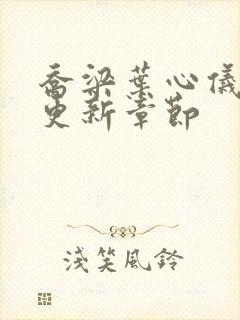 喬梁葉心儀
更新章節
淺笑風鈴